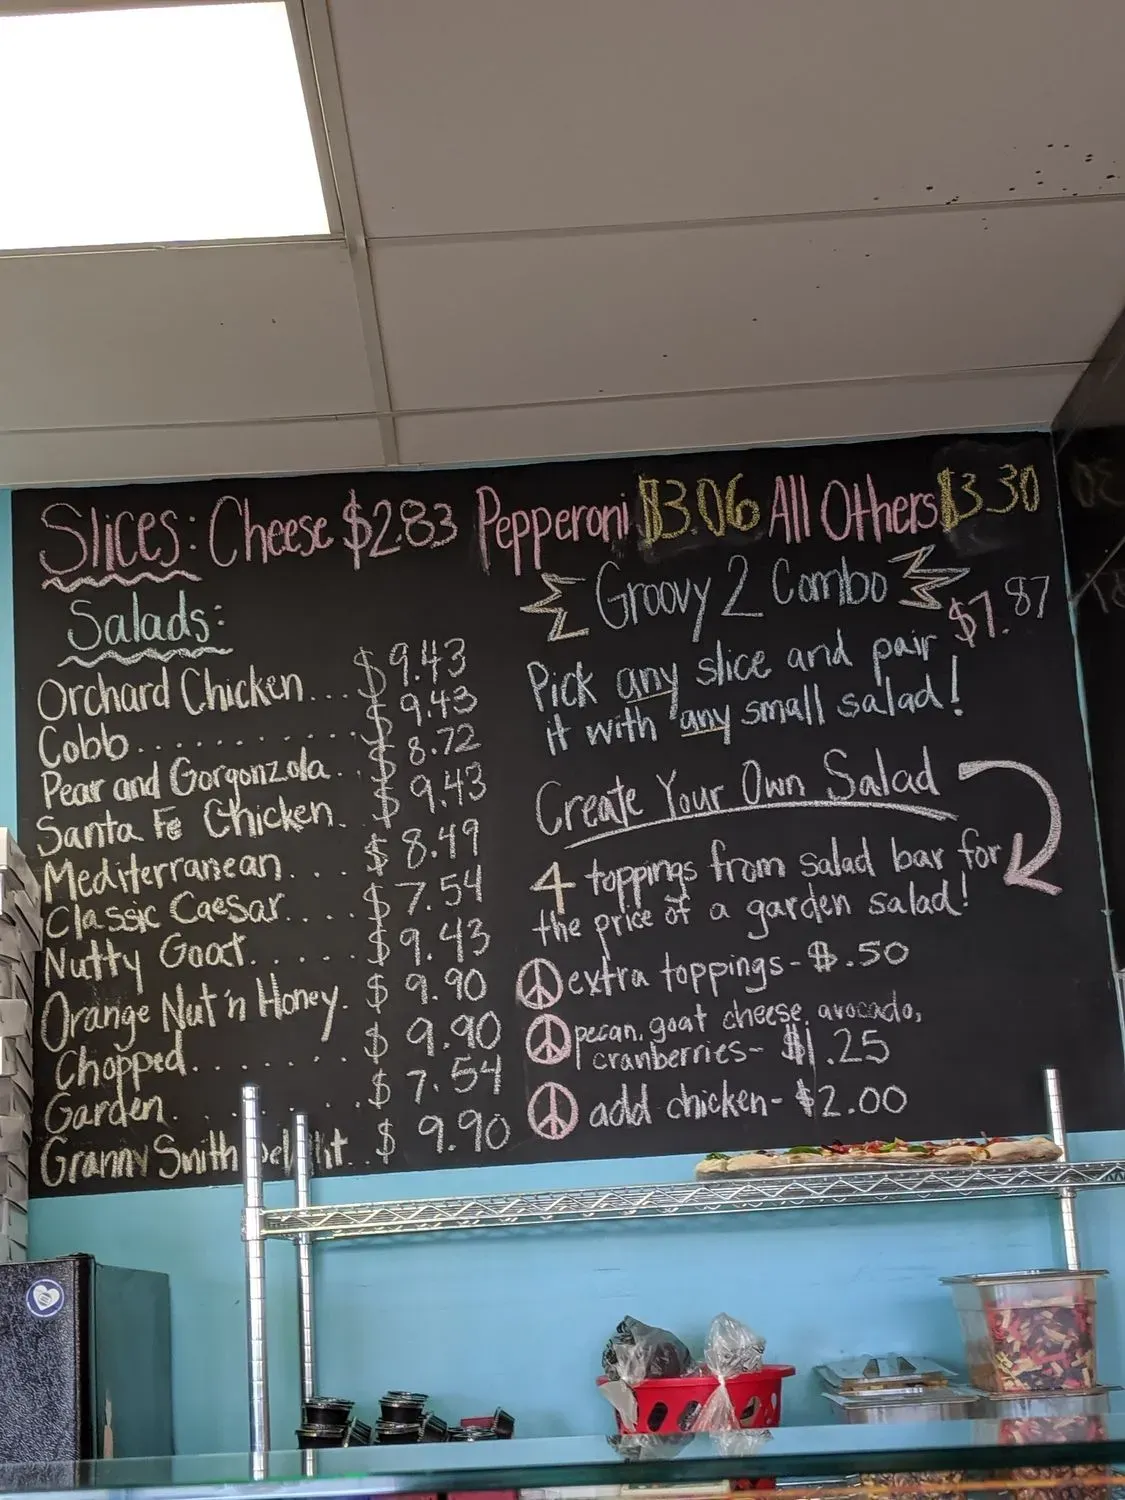 Slices: Cheese $2.83 Pepperoni $3.06 All Others $3.30
Salads:
Orchard Chicken.... $9.43
Cobb............ $9.43
Pear and Gorgonzola.. $8.72
Santa Fe Chicken. $9.43
Mediterranean... $8.49
Classic Caesar.... $7.54
Nutty Goat...... $9.43
Orange Nut'n Honey. $9.90
Chopped....... $9.90
Garden........ $7.54
Granny Smith .. $9.90
Groovy 2 Combo $7.87
Pick any slice and pair
it with any small salad!
Create Your Own Salad
4 toppings from salad bar for
the price of a garden salad!
extra toppings - $.50
pecan, goat cheese, avocado,
cranberries - $1.25
add chicken - $2.00